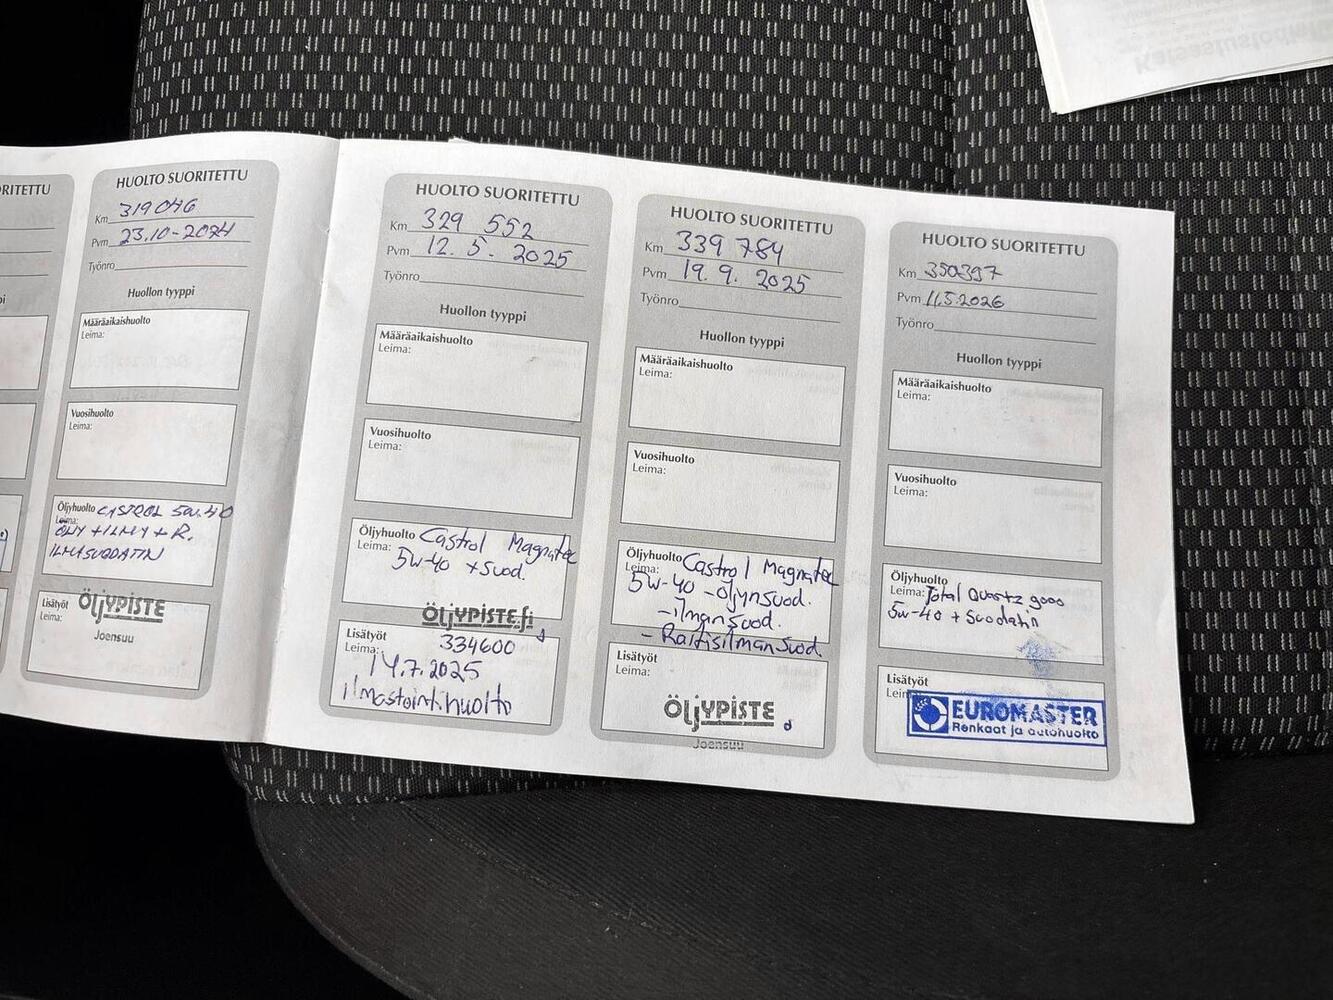 RITETTU
HUOLTO SUORITETTU
Km 319 046
Pvm 23.10-2024
Työnro
Huollon tyyppi
Määräaikaishuolto
Leima:
Vuosihuolto
Leima:
Öljyhuolto CASTROL 5W-40
Leima: ÖLJY + ILMA + R.
ILMASUODATIN
Lisätyöt ÖLJYPISTE
Leima: Joensuu
HUOLTO SUORITETTU
Km 329 552
Pvm 12. 5. 2025
Työnro
Huollon tyyppi
Määräaikaishuolto
Leima:
Vuosihuolto
Leima:
Öljyhuolto Castrol Magnatec
Leima: 5w-40 + suod.
ÖLJYPISTE.fi
Lisätyöt 334600
Leima: 14.7.2025
ilmastointihuolto
HUOLTO SUORITETTU
Km 339 784
Pvm 19. 9. 2025
Työnro
Huollon tyyppi
Määräaikaishuolto
Leima:
Vuosihuolto
Leima:
Öljyhuolto Castrol Magnatec
Leima: 5w-40 -öljynsuod.
-ilmansuod.
- Raitisilmansuod.
Lisätyöt
Leima:
ÖLJYPISTE
Joensuu
HUOLTO SUORITETTU
Km 350397
Pvm 11.5.2026
Työnro
Huollon tyyppi
Määräaikaishuolto
Leima:
Vuosihuolto
Leima:
Öljyhuolto
Leima: Total Quartz 9000
5w-40 + Suodatin
Lisätyöt
Leim
EUROMASTER
Renkaat ja autohuolto